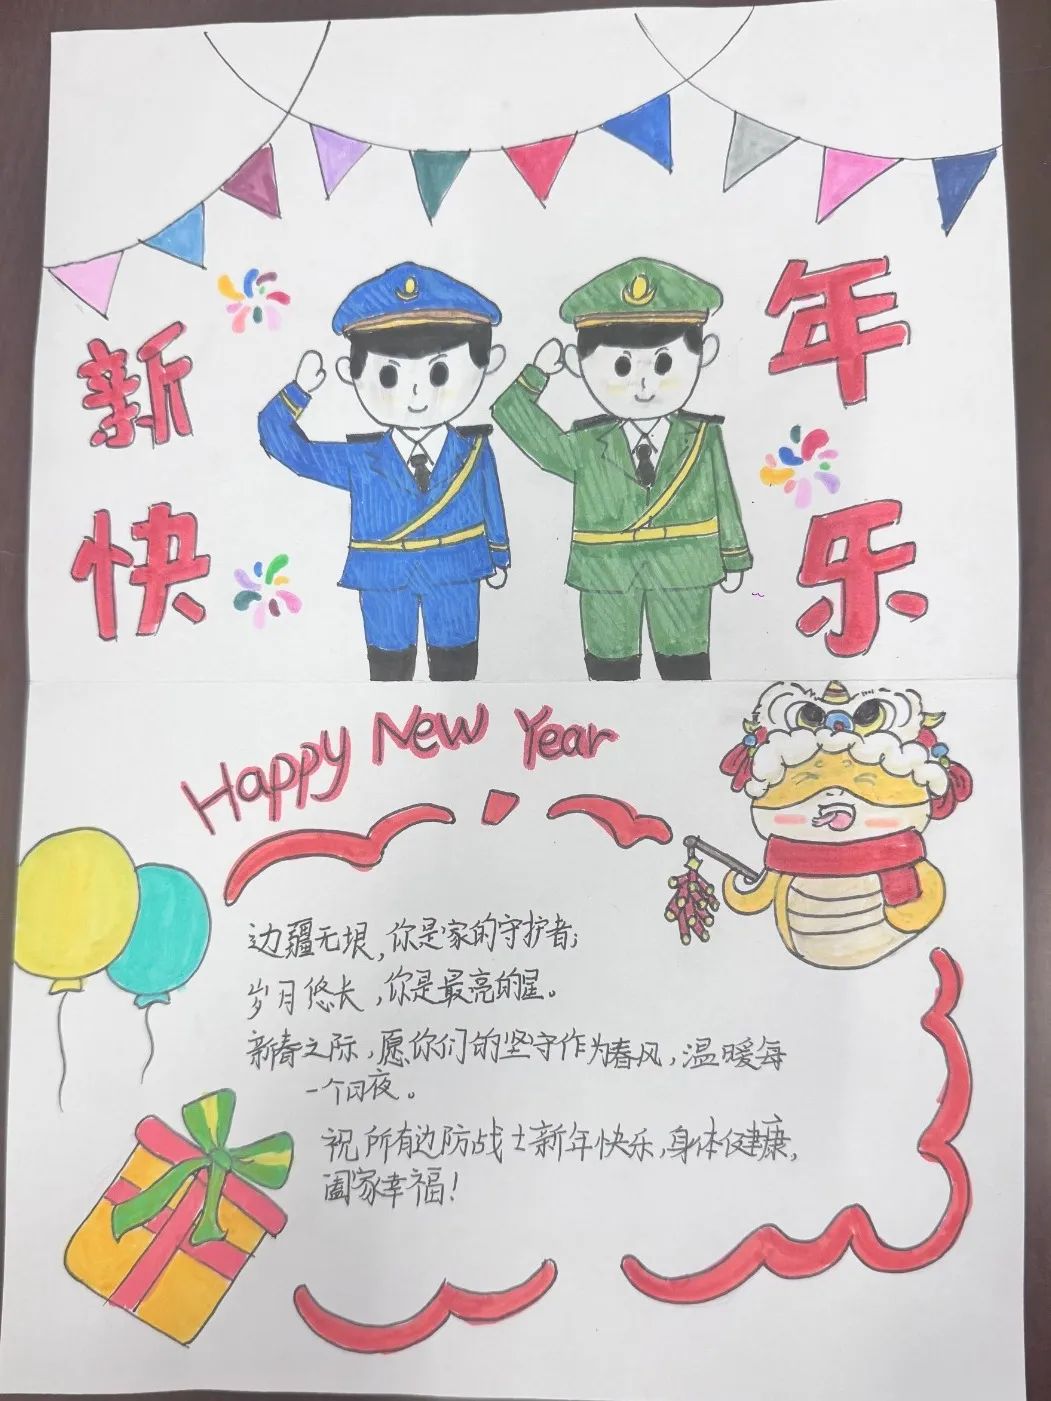 新年
快乐
Happy New Year
边疆无垠,你是家的守护者;
岁月悠长,你是最亮的星。
新春之际,愿你们的坚守作为春风,温暖每
一个日夜。
祝所有边防战士新年快乐,身体健康,
阖家幸福!